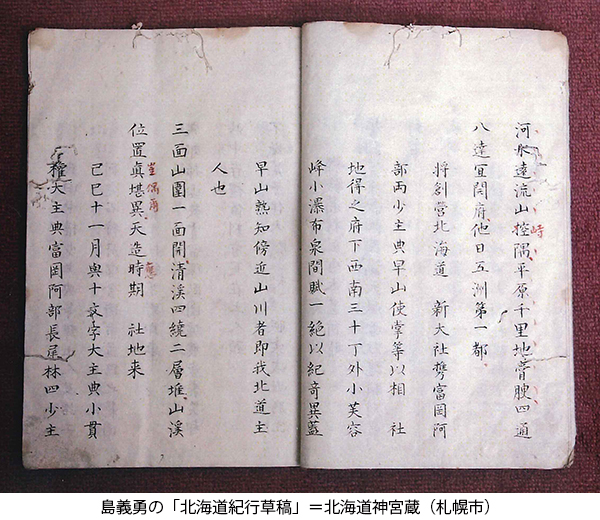 河水遠流山控隅平原千里地膏腴四通
峙
八達宜開府他日五洲第一都
將創營北海道 新大社携富岡阿
部両少主典早山使掌等以相 社
地得之府下西南三十丁外小芙容
峰小瀑布泉間賦一絶以紀奇異蓋
早山熟知傍近山川者即我北道主
人也
三面山圍一面開清溪四繞二層堆山溪
位置真堪異天造時期 社地来
豈偶爾
應
己巳十一月與十文字大主典小貫
権大主典富岡阿部長尾林四少主
島義勇の「北海道紀行草稿」＝北海道神宮蔵（札幌市）